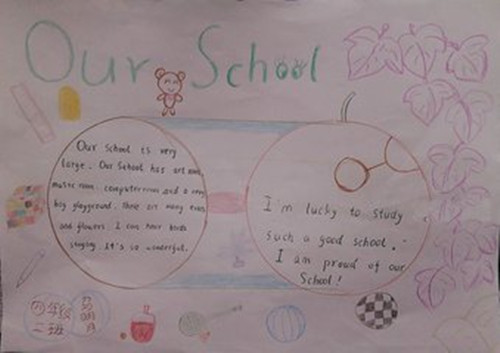 Our School
Our School is very
large. Our School has art room,
music room. computer room and a very
big playground. There are many trees
and flowers. I can hear birds
singing. It's so wonderful.
I'm lucky to study
such a good school.
I am proud of our
School!
四年级
二班